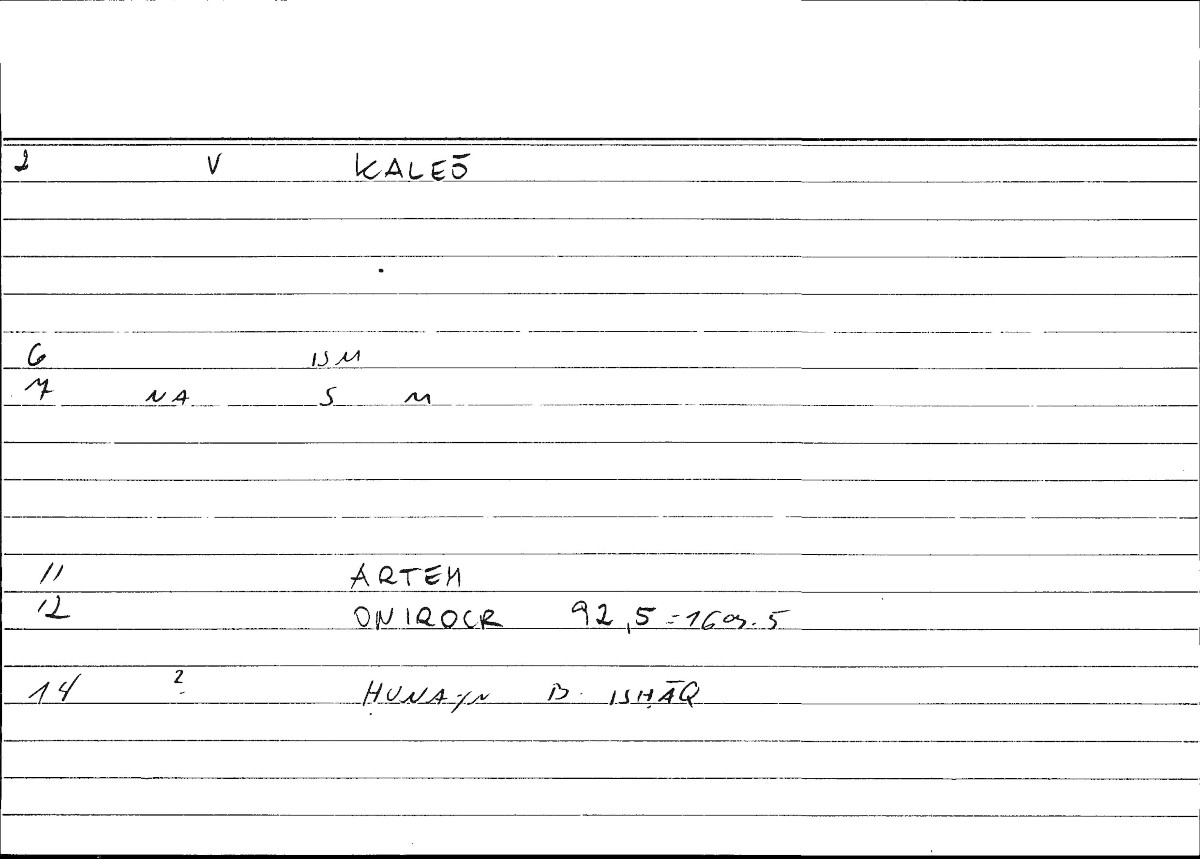 2 V KALEŌ
6 ISM
7 NA S M
11 ARTEM
12 ONIROCR 92,5 = 169.5
14 2 ḤUNAYN B. ISḤĀQ